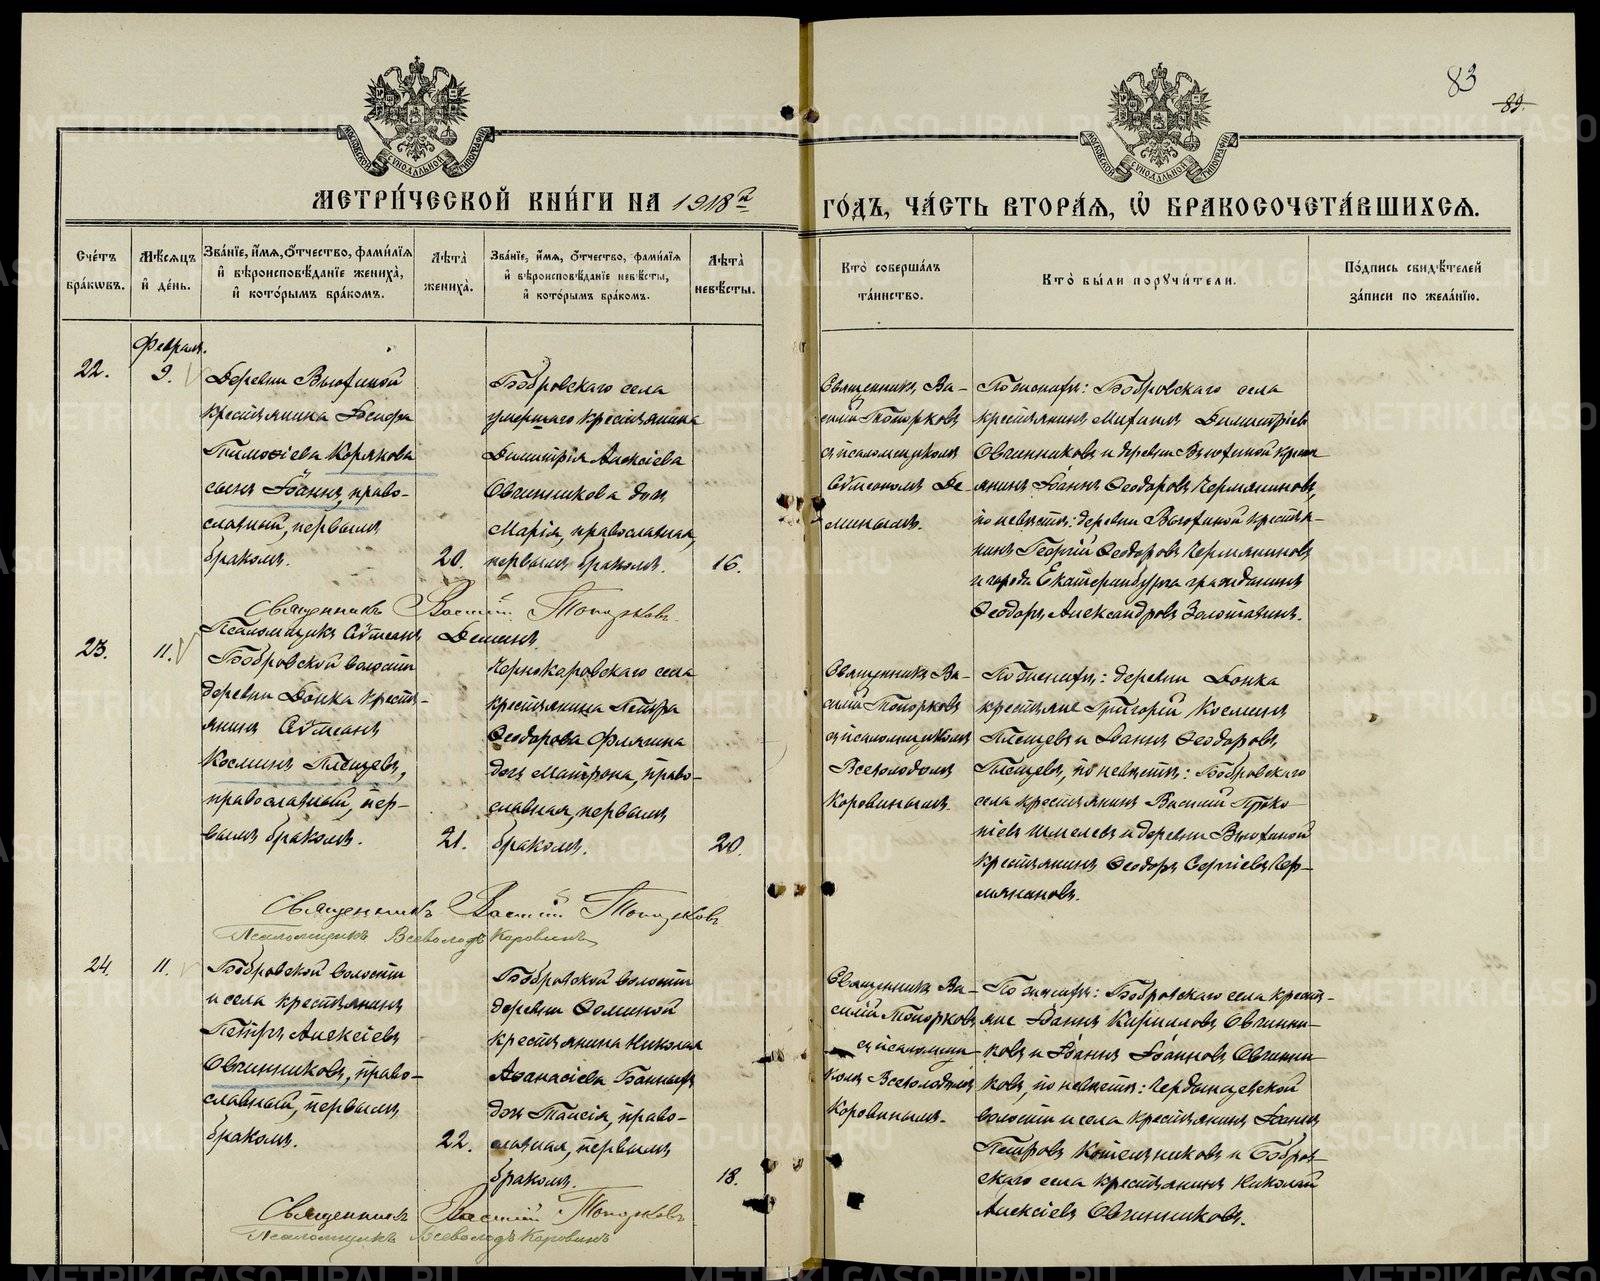 83
89.
МОСКОВСКОЙ СѴНОДАЛЬНОЙ ТИПОГРАФІИ
МОСКОВСКОЙ СѴНОДАЛЬНОЙ ТИПОГРАФІИ
МЕТРИ́ЧЕСКОЙ КНИ́ГИ НА 1918й
ГО́ДЪ, ЧА́СТЬ ВТОРА́Я, Ѡ҆ БРАКОСОЧЕТА́ВШИХСЯ.
Сче́тъ
бра́кѡвъ.
Мѣ́сяцъ
и҆ де́нь.
Зва́нїе, и҆́мя, ѻ҆́тчество, фами́лїя
и҆ вѣроисповѣ́данїе жениха̀,
и҆ кото́рымъ бра́комъ.
Лѣта̀
жениха̀.
Зва́нїе, и҆́мя, ѻ҆́тчество, фами́лїя
и҆ вѣроисповѣ́данїе невѣ́сты,
и҆ кото́рымъ бра́комъ.
Лѣта̀
невѣ́сты.
Кто̀ соверша́лъ
та́инство.
Кто̀ бы́ли поручи́тели.
По́дпись свидѣ́телей
за́писи по жела́нїю.
22.
Февраля.
9.
Деревни Вьюхиной
крестьянина Іосифа
Тимоѳіева Корякова
сынъ Іоаннъ, право-
славный, первымъ
бракомъ.
20.
Бобровскаго села
умершаго крестьянина
Димитрія Алексіева
Овчинникова дочь
Марія, православная,
первымъ бракомъ.
16.
Священникъ Ва-
силій Топорковъ
съ псаломщикомъ
Сѵмеономъ Де-
минымъ.
По женихѣ: Бобровскаго села
крестьянинъ Михаилъ Димитріевъ
Овчинниковъ и деревни Вьюхиной кресть-
янинъ Іоаннъ Ѳеодоровъ Чермяниновъ,
по невѣстѣ: деревни Вьюхиной крестья-
нинъ Георгій Ѳеодоровъ Чермяниновъ
и города Екатеринбурга гражданинъ
Ѳеодоръ Александровъ Золотавинъ.
Священникъ Василій Топорковъ.
Псаломщикъ Сѵмеонъ Деминъ.
23.
11.
Бобровской волости
деревни Іонка кресть-
янинъ Сѵмеонъ
Косминъ Плещевъ,
православный, пер-
вымъ бракомъ.
21.
Чернокоровскаго села
крестьянина Петра
Ѳеодорова Флягина
дочь Матрона, право-
славная, первымъ
бракомъ.
20.
Священникъ Ва-
силій Топорковъ
съ псаломщикомъ
Всеволодомъ
Коровинымъ.
По женихѣ: деревни Іонка
крестьяне Григорій Косминъ
Плещевъ и Іоаннъ Ѳеодоровъ
Плещевъ, по невѣстѣ: Бобровскаго
села крестьянинъ Василій Проко-
піевъ Шмелевъ и деревни Вьюхиной
крестьянинъ Ѳеодоръ Сергіевъ Чер-
мяниновъ.
Священникъ Василій Топорковъ
Псаломщикъ Всеволодъ Коровинъ
24.
11.
Бобровской волости
и села крестьянинъ
Петръ Алексіевъ
Овчинниковъ, право-
славный, первымъ
бракомъ.
22.
Бобровской волости
деревни Ѳоминой
крестьянина Николая
Аѳанасіева Банныхъ
дочь Таисія, право-
славная, первымъ
бракомъ.
18.
Священникъ Ва-
силій Топорковъ
съ псаломщи-
комъ Всеволодомъ
Коровинымъ.
По женихѣ: Бобровскаго села кресть-
яне Іоаннъ Кирилловъ Овчинни-
ковъ и Іоаннъ Іоанновъ Овчинни-
ковъ, по невѣстѣ: Чердынцевской
волости и села крестьянинъ Іоаннъ
Петровъ Котельниковъ и Бобров-
скаго села крестьянинъ Николай
Алексіевъ Овчинниковъ.
Священникъ Василій Топорковъ
Псаломщикъ Всеволодъ Коровинъ
METRIKI.GASO-URAL.RU